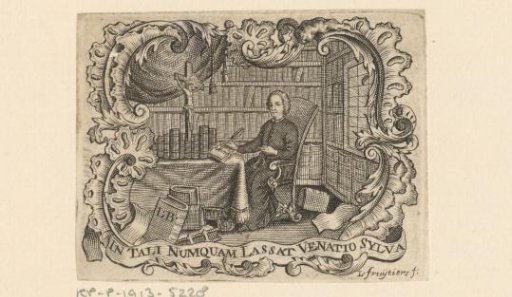 LB
IN TALI NUMQUAM LASSAT VENATIO SYLVA
L. fruytiers f.
RP-P-1913-5228